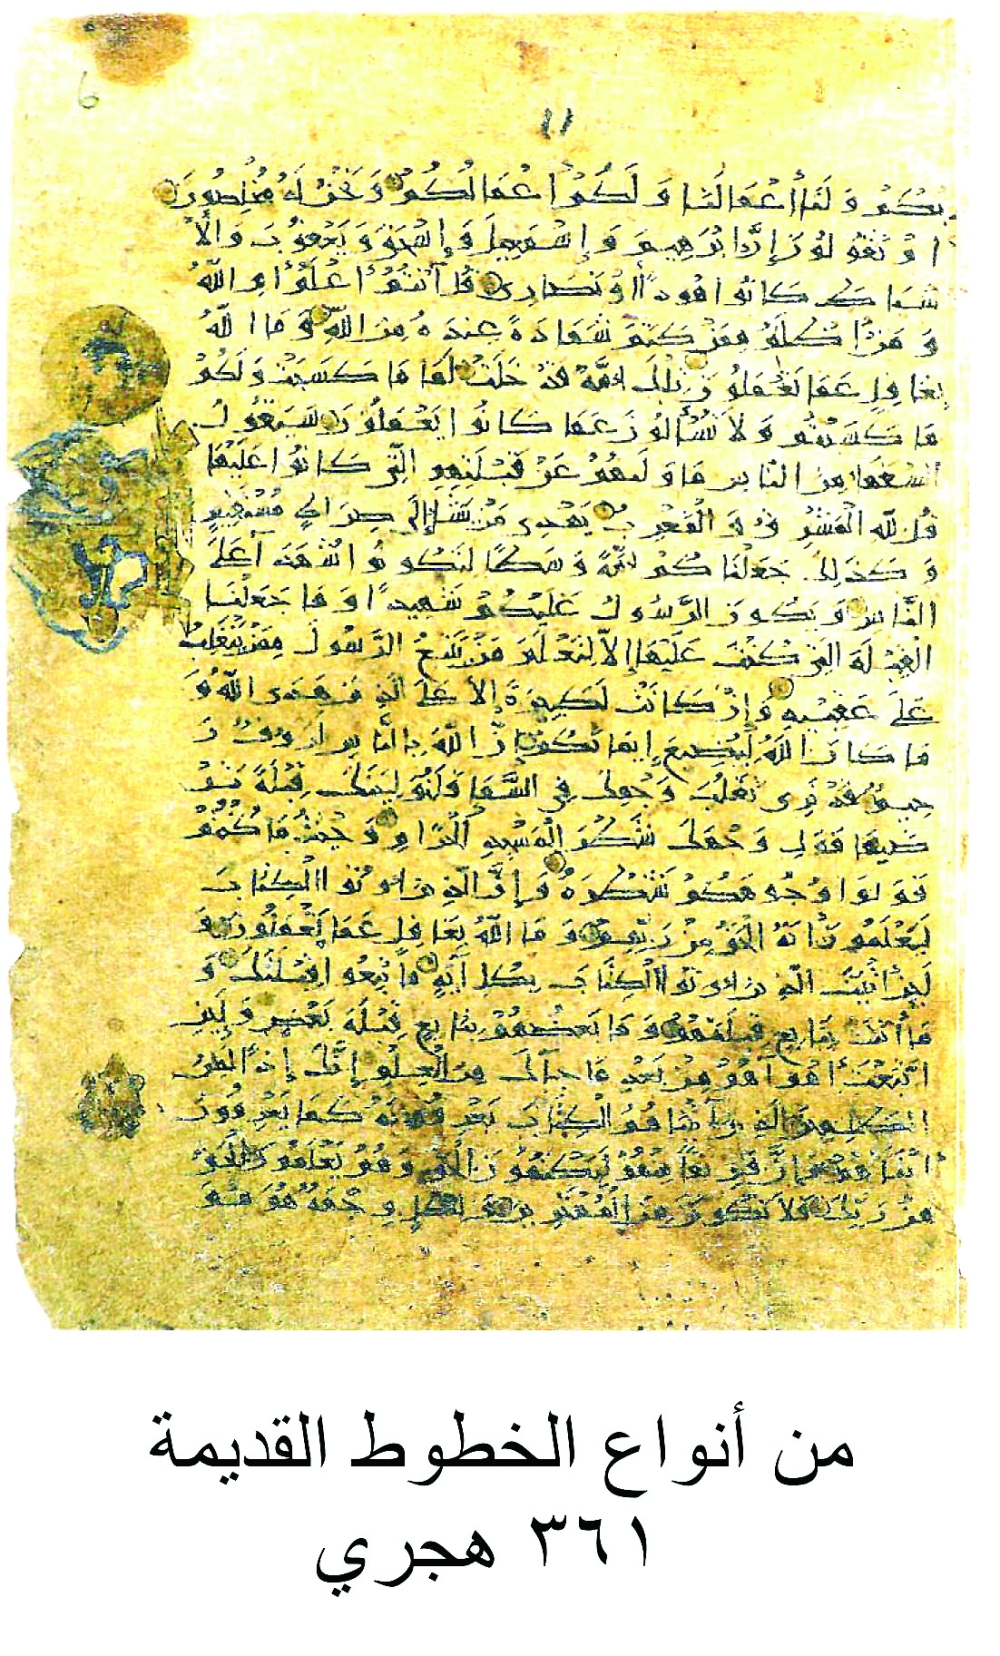 6
11
بكم ولنا أعمالنا ولكم أعمالكم ونحن له مخلصون
ام تقولون إن إبرهيم وإسمعيل وإسحق ويعقوب والأ
سباط كانوا هودا أو نصارى قل أنتم أعلم أم الله
ومن أظلم ممن كتم شهادة عنده من الله وما الله
بغافل عما تعملون تلك أمة قد خلت لها ما كسبت ولكم
ما كسبتم ولا تسألون عما كانوا يعملون سيقول
السفها من الناس ما وليهم عن قبلتهم التي كانوا عليها
قل لله المشرق والمغرب يهدي من يشا إلى صراط مستقيم
وكذلك جعلناكم أمة وسطا لتكونوا شهدا على
الناس ويكون الرسول عليكم شهيدا وما جعلنا
القبلة التي كنت عليها إلا لنعلم من يتبع الرسول ممن ينقلب
على عقبيه وإن كانت لكبيرة إلا على الذين هدى الله و
ما كان الله ليضيع إيمانكم إن الله بالناس لروف ر
حيم قد نرى تقلب وجهك في السما فلنولينك قبلة تر
ضيها فول وجهك شطر المسجد الحرام وحيث ما كنتم
فولوا وجوهكم شطره وإن الذين أوتوا الكتاب
ليعلمون أنه الحق من ربهم وما الله بغافل عما يعملون و
لئن أتيت الذين أوتوا الكتاب بكل آية ما تبعوا قبلتك و
ما أنت بتابع قبلتهم وما بعضهم بتابع قبلة بعض ولئن
اتبعت أهواهم من بعد ما جاك من العلم إنك إذا لمن
الظلمين الذين آتيناهم الكتاب يعرفونه كما يعرفون
أبناهم وإن فريقا منهم ليكتمون الحق وهم يعلمون الحق
من ربك فلا تكونن من الممترين ولكل وجهة هو مو
من أنواع الخطوط القديمة
٣٦١ هجري